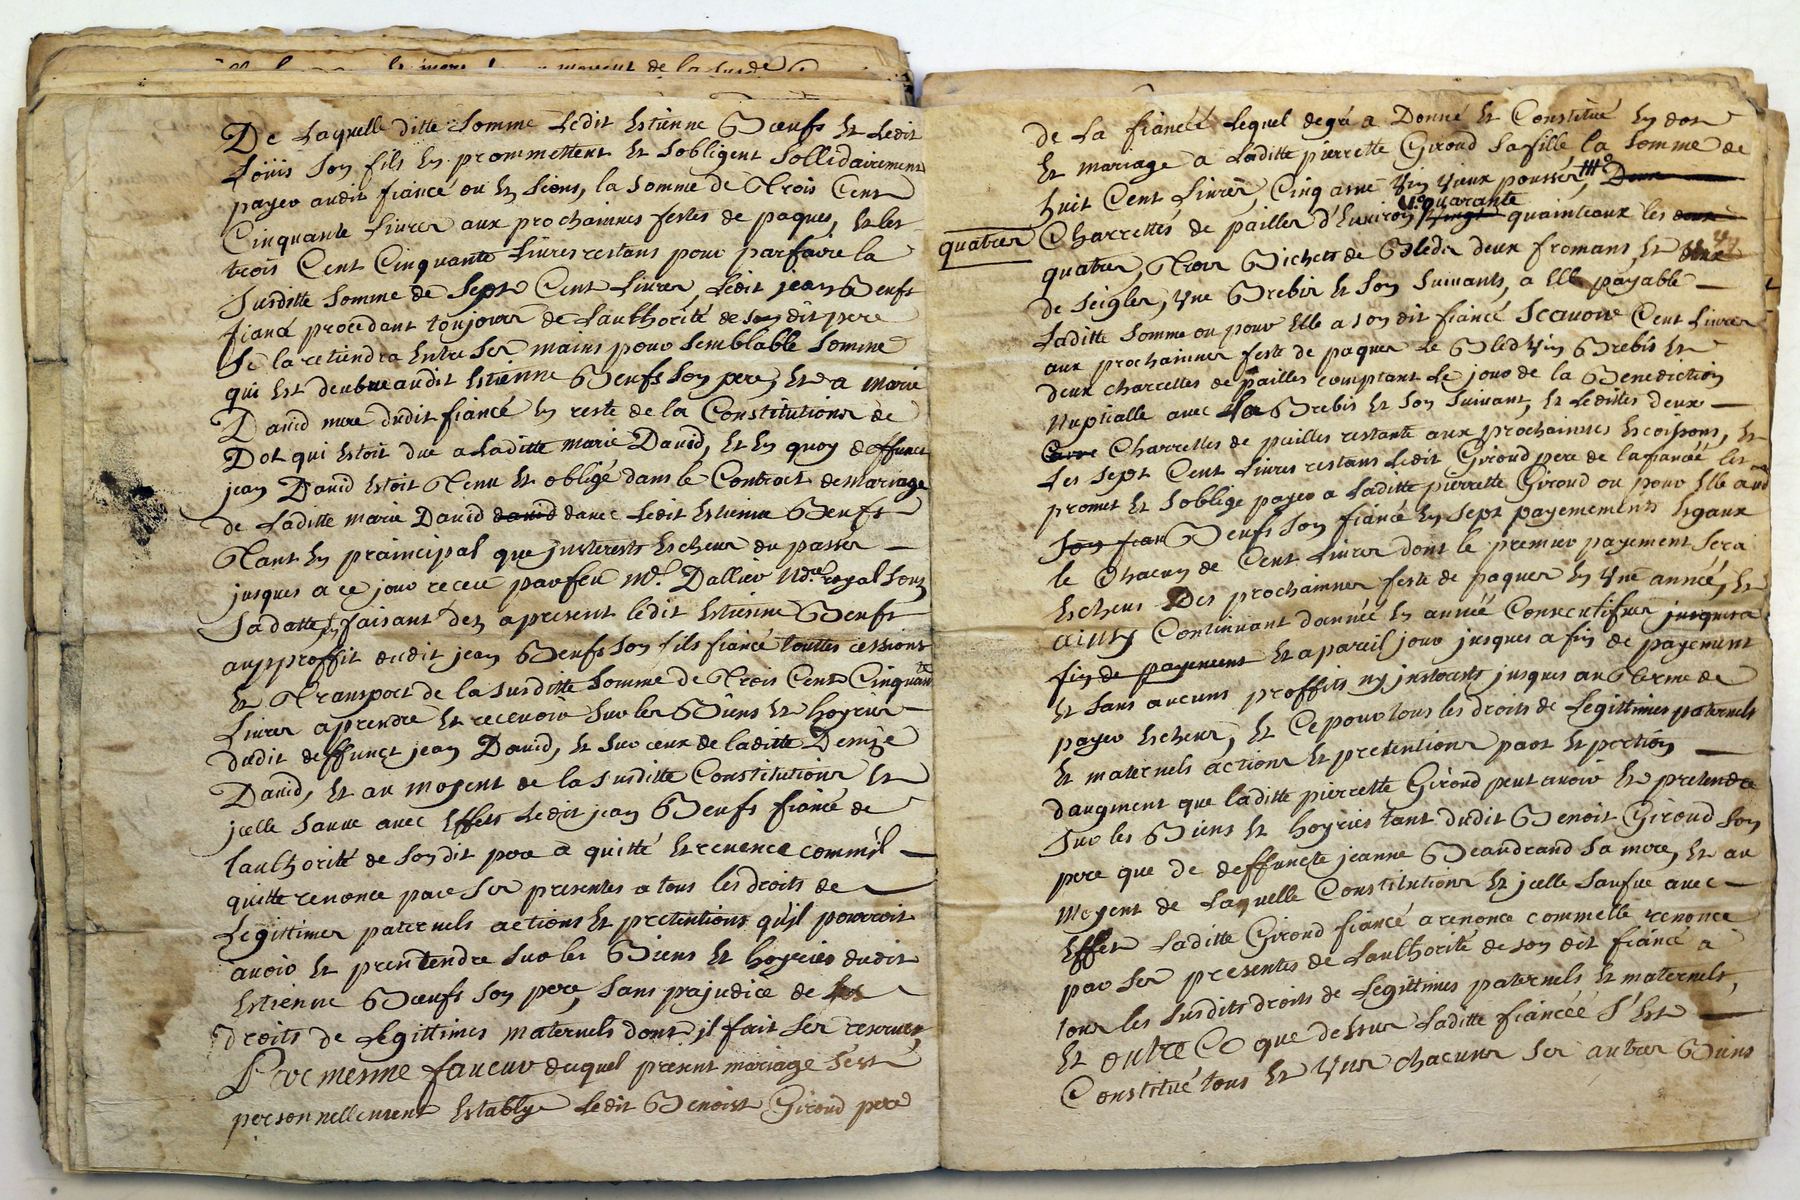 De Laquelle ditte Somme Ledit Estienne Bœufs Et Ledit
Loüis Son fils En prommettent Et Sobligent Sollidairement
payer audit fiancé ou Es Siens, la Somme de Trois Cent
Cinquante Livres aux prochainnes festes de paques, Et les
trois Cent Cinquante Livres restans pour parfaire la
Susditte Somme de Sept Cent Livres, Ledit jean Beufs
fiancé procedant toujours de Lauthorité de son dit pere
Se la retiendra Entre Ses mains pour Semblable Somme
qui Est deubue audit Estienne Beufs Son pere, Et a marie
David mere dudit fiancé En reste de la Constitutions de
Dot qui Estoit due a Laditte marie David, Et En quoy deffunct
jean David Estoit Tenu Et obligé dans le Contract de mariage
de Laditte marie David david davec Ledit Estienne Beufs
Tant En prainicipal que jnterests Escheus du passer
jusques a ce jour receu par feu Me. Dallier Ndre royal Sous
Sa datte, faisant dez apresent ledit Estienne Beufs
aupproffit dudit jean Beufs Son fils fiancé touttes cessions
Et Transport de la Susditte Somme de Trois Cent Cinquante
Livres aprendre Et recevoir Sur les Biens Et hoyries
dudit deffunct jean David, Et Sur ceux de laditte Denize
David, Et au moyent de la Susditte Constitutions Et
jcelle Sauve avec Effets Ledit jean Beufs fiancé de
lauthorité de Sondit pere a quitté Et renoncé comm'il
quitte renonce par Ses presentes a tous les droits de
Legittimes paternels actions Et pretentions qu'jl pourroit
avoir Et prentendre Sur les Biens Et hoyries dudit
Estienne Bœufs Son pere, Sans prajudice de Ses
droits de Legittimes maternels dont jl fait Ses reserves,
En mesme faveur duquel present mariage S'est
personnellement Establye Ledit Benoist Giroud pere
de La fiancéé Lequel degrá a Donné Et Constitué En dot
Et mariage a Laditte pierrette Giroud Sa fille la Somme de
huit Cent Livres, Cinq asné Vin Vieux pousser,
quatres Charrettés de pailles d'Environ Vingt quarante quainteaux les deux
quatres, Trois Bichets de Bleds deux fromans, Et
de Seigles, Une Brebis Et Son Suivants, a Elle payable
Laditte Somme ou pour Elle a son dit fiancé Scavoir Cent Livres
aux prochainnes feste de paques Le Bled Vin Brebis Et
deux charrettes de pailles comptant Le jour de la Benediction
Nuptialle avec La Brebis Et Son Suivant, Et Lesdittes deux
Charrettes de pailles restante aux prochainnes Escoissons, Et
Les Sept Cent Livres restans Ledit Giroud pere de la fiancéé les
promet Et Soblige payer a Laditte pierrette Giroud ou pour Elle aud
Son jean Beufs Son fiancé En Sept payemements Egaux
le Chacun de Cent Livres dont le premier payement Sera
Escheus Des prochainnes feste de paques En Une année, Et
ainsy Continuant dannéé En annéé Consecutifves jusques a
fin de payement Et a pareil jour jusques a fin de payement
Et Sans aucuns proffits ny jnterests jusques au Terme de
payer Escheus, Et Ce pour tous les droits de Legittimes paternels
Et maternels actions Et pretentions part Et portion
daugment que laditte pierrette Giroud peut avoir Et pretendre
Sur les Biens Et hoyries tant dudit Benoit Giroud Son
pere que de deffuncte jeanne Beaudrand Sa mere, Et au
moyent de Laquelle Constitutions Et jcelle Saufve avec
Effet Laditte Giroud fiancé a renoncé comm'elle renonce
par Ses presentes de Lauthorité de son dit fiancé a
tous les Susdits droits de Legittimes paternels Et maternels,
Et outre Ce que dessus Laditte fiancéé S'Est
Constitué tous Et Uns chacuns Ses autres Biens